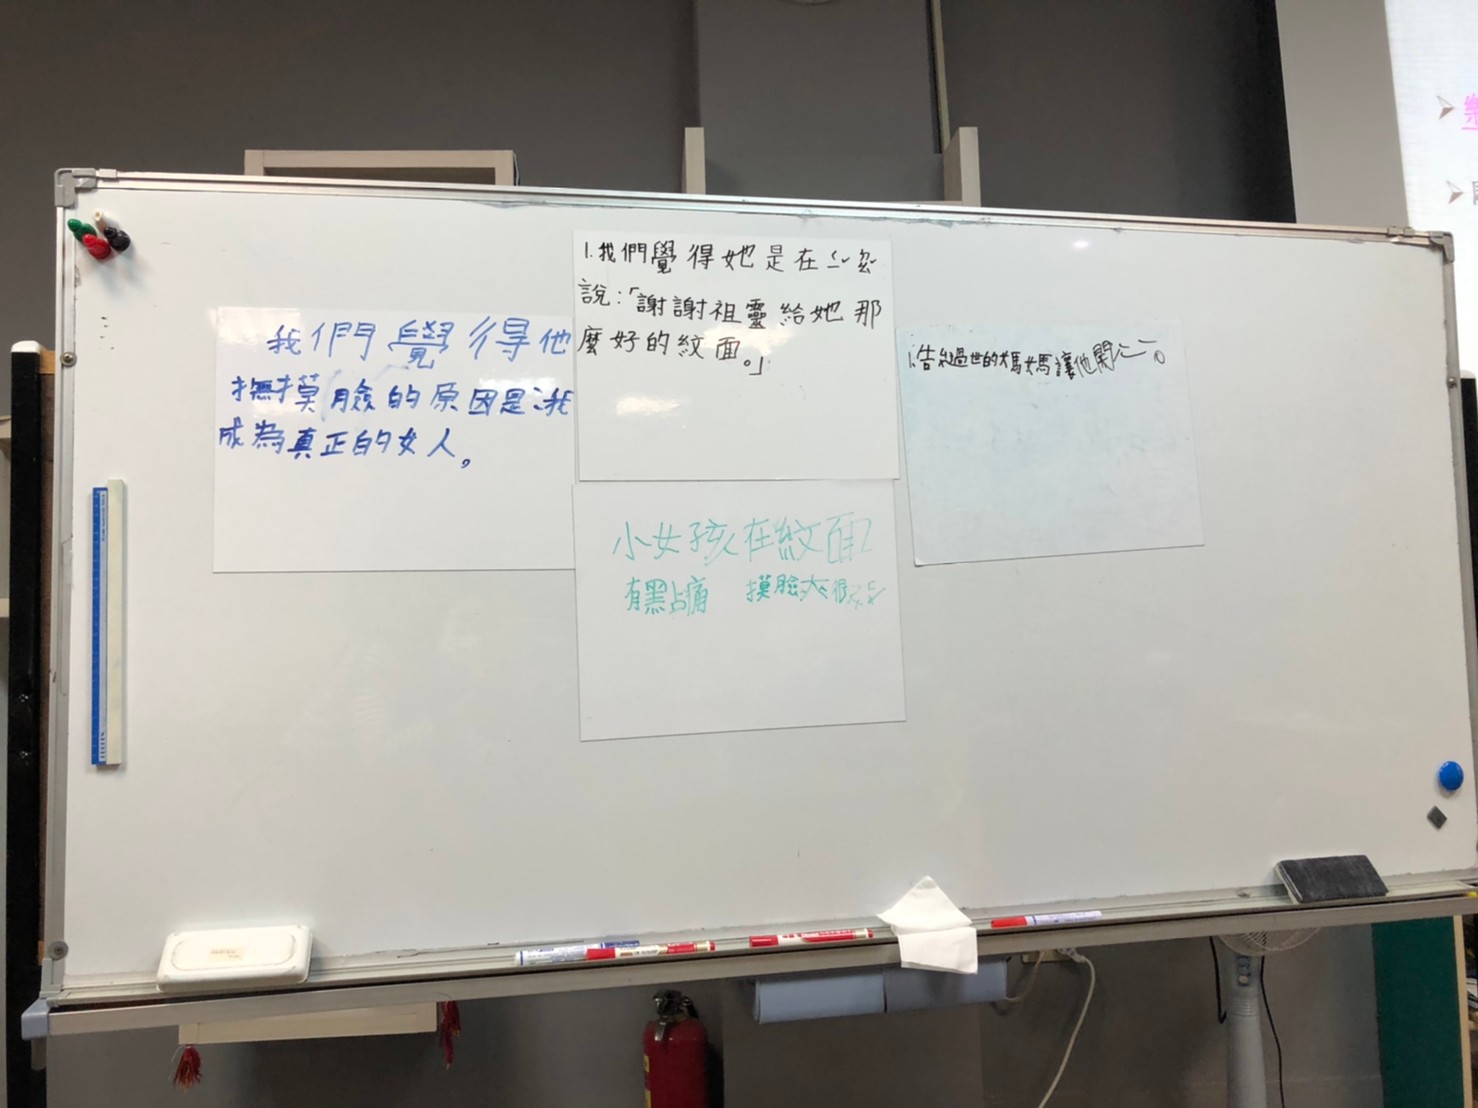 我們覺得他
撫摸臉的原因是:我
成為真正的女人,
1.我們覺得她是在
說:「謝謝祖靈給她那
麼好的紋面。」
1.告 過世的媽媽讓他開心。
小女孩在紋面
有點痛 摸臉 很